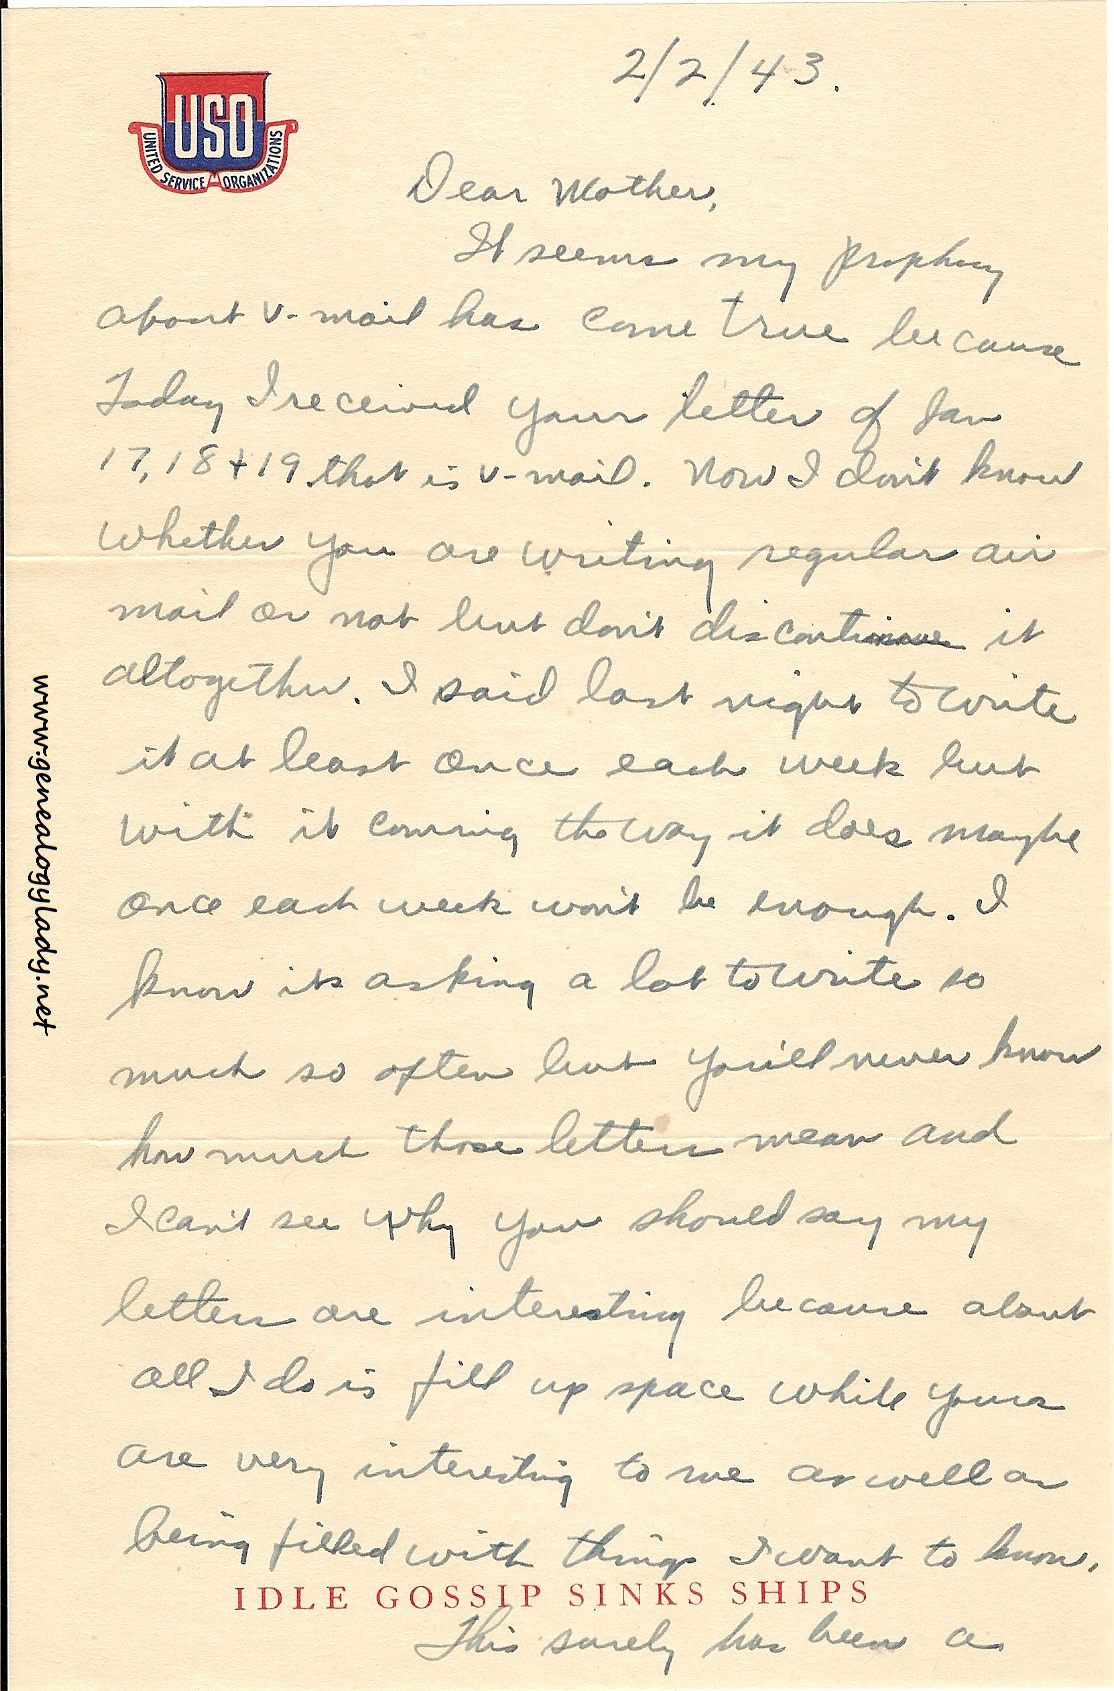 2/2/43.
USO
UNITED SERVICE ORGANIZATIONS
Dear Mother,
It seems my prophecy
about v-mail has come true because
today I received your letter of Jan
17, 18 + 19 that is v-mail. Now I don't know
whether you are writing regular air
mail or not but don't discontinue it
altogether. I said last night to write
it at least once each week but
with it coming the way it does maybe
once each week won't be enough. I
know its asking a lot to write so
much so often but you'll never know
how much those letters mean and
I can't see why you should say my
letters are interesting because about
all I do is fill up space while yours
are very interesting to me as well as
being filled with things I want to know.
IDLE GOSSIP SINKS SHIPS
This surely has been a
www.genealogylady.net